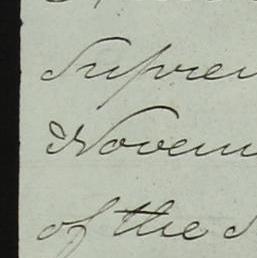 Suprem
Novem
of the S